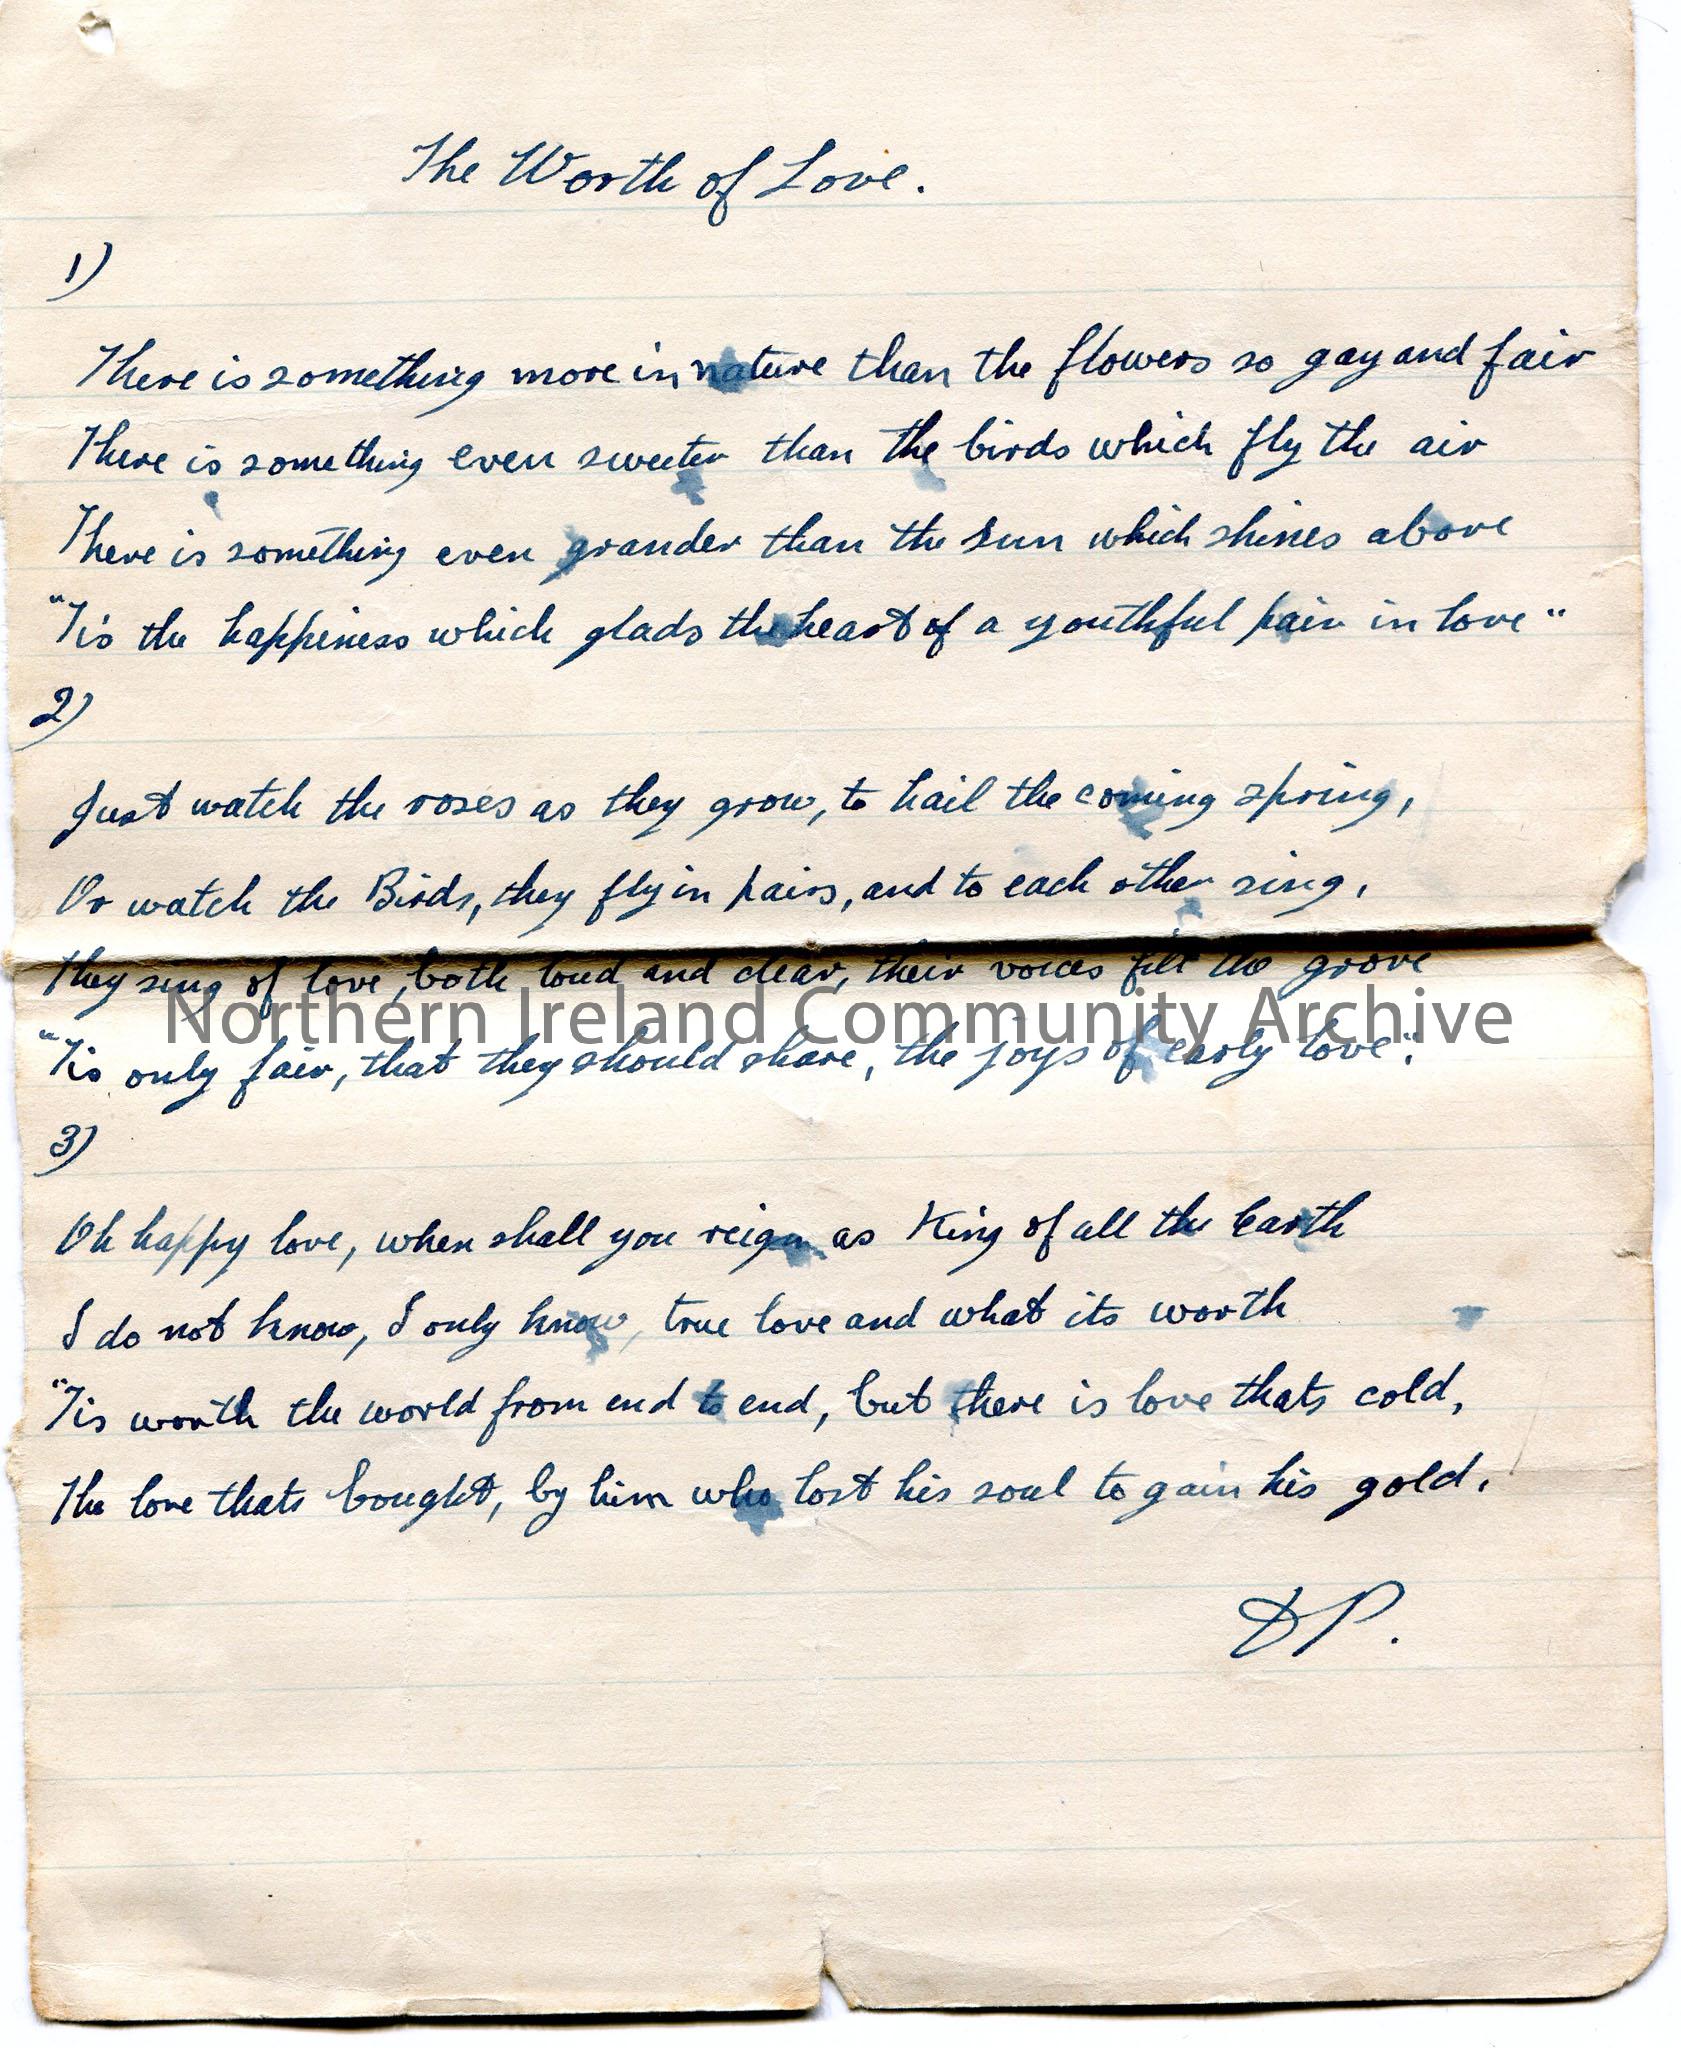 The Worth of Love.
1)
There is something more in nature than the flowers so gay and fair
There is something even sweeter than the birds which fly the air
There is something even grander than the sun which shines above
"Tis the happiness which glads the heart of a youthful pair in love"
2)
Just watch the roses as they grow, to hail the coming spring,
Or watch the Birds, they fly in pairs, and to each other sing,
They sing of love, both loud and clear, their voices fill the grove
Northern Ireland Community Archive
"Tis only fair, that they should share, the joys of early love".
3)
Oh happy love, when shall you reign as King of all the Earth
I do not know, I only know, true love and what its worth
"Tis worth the world from end to end, but there is love thats cold,
The love thats bought, by him who lost his soul to gain his gold.
DP.